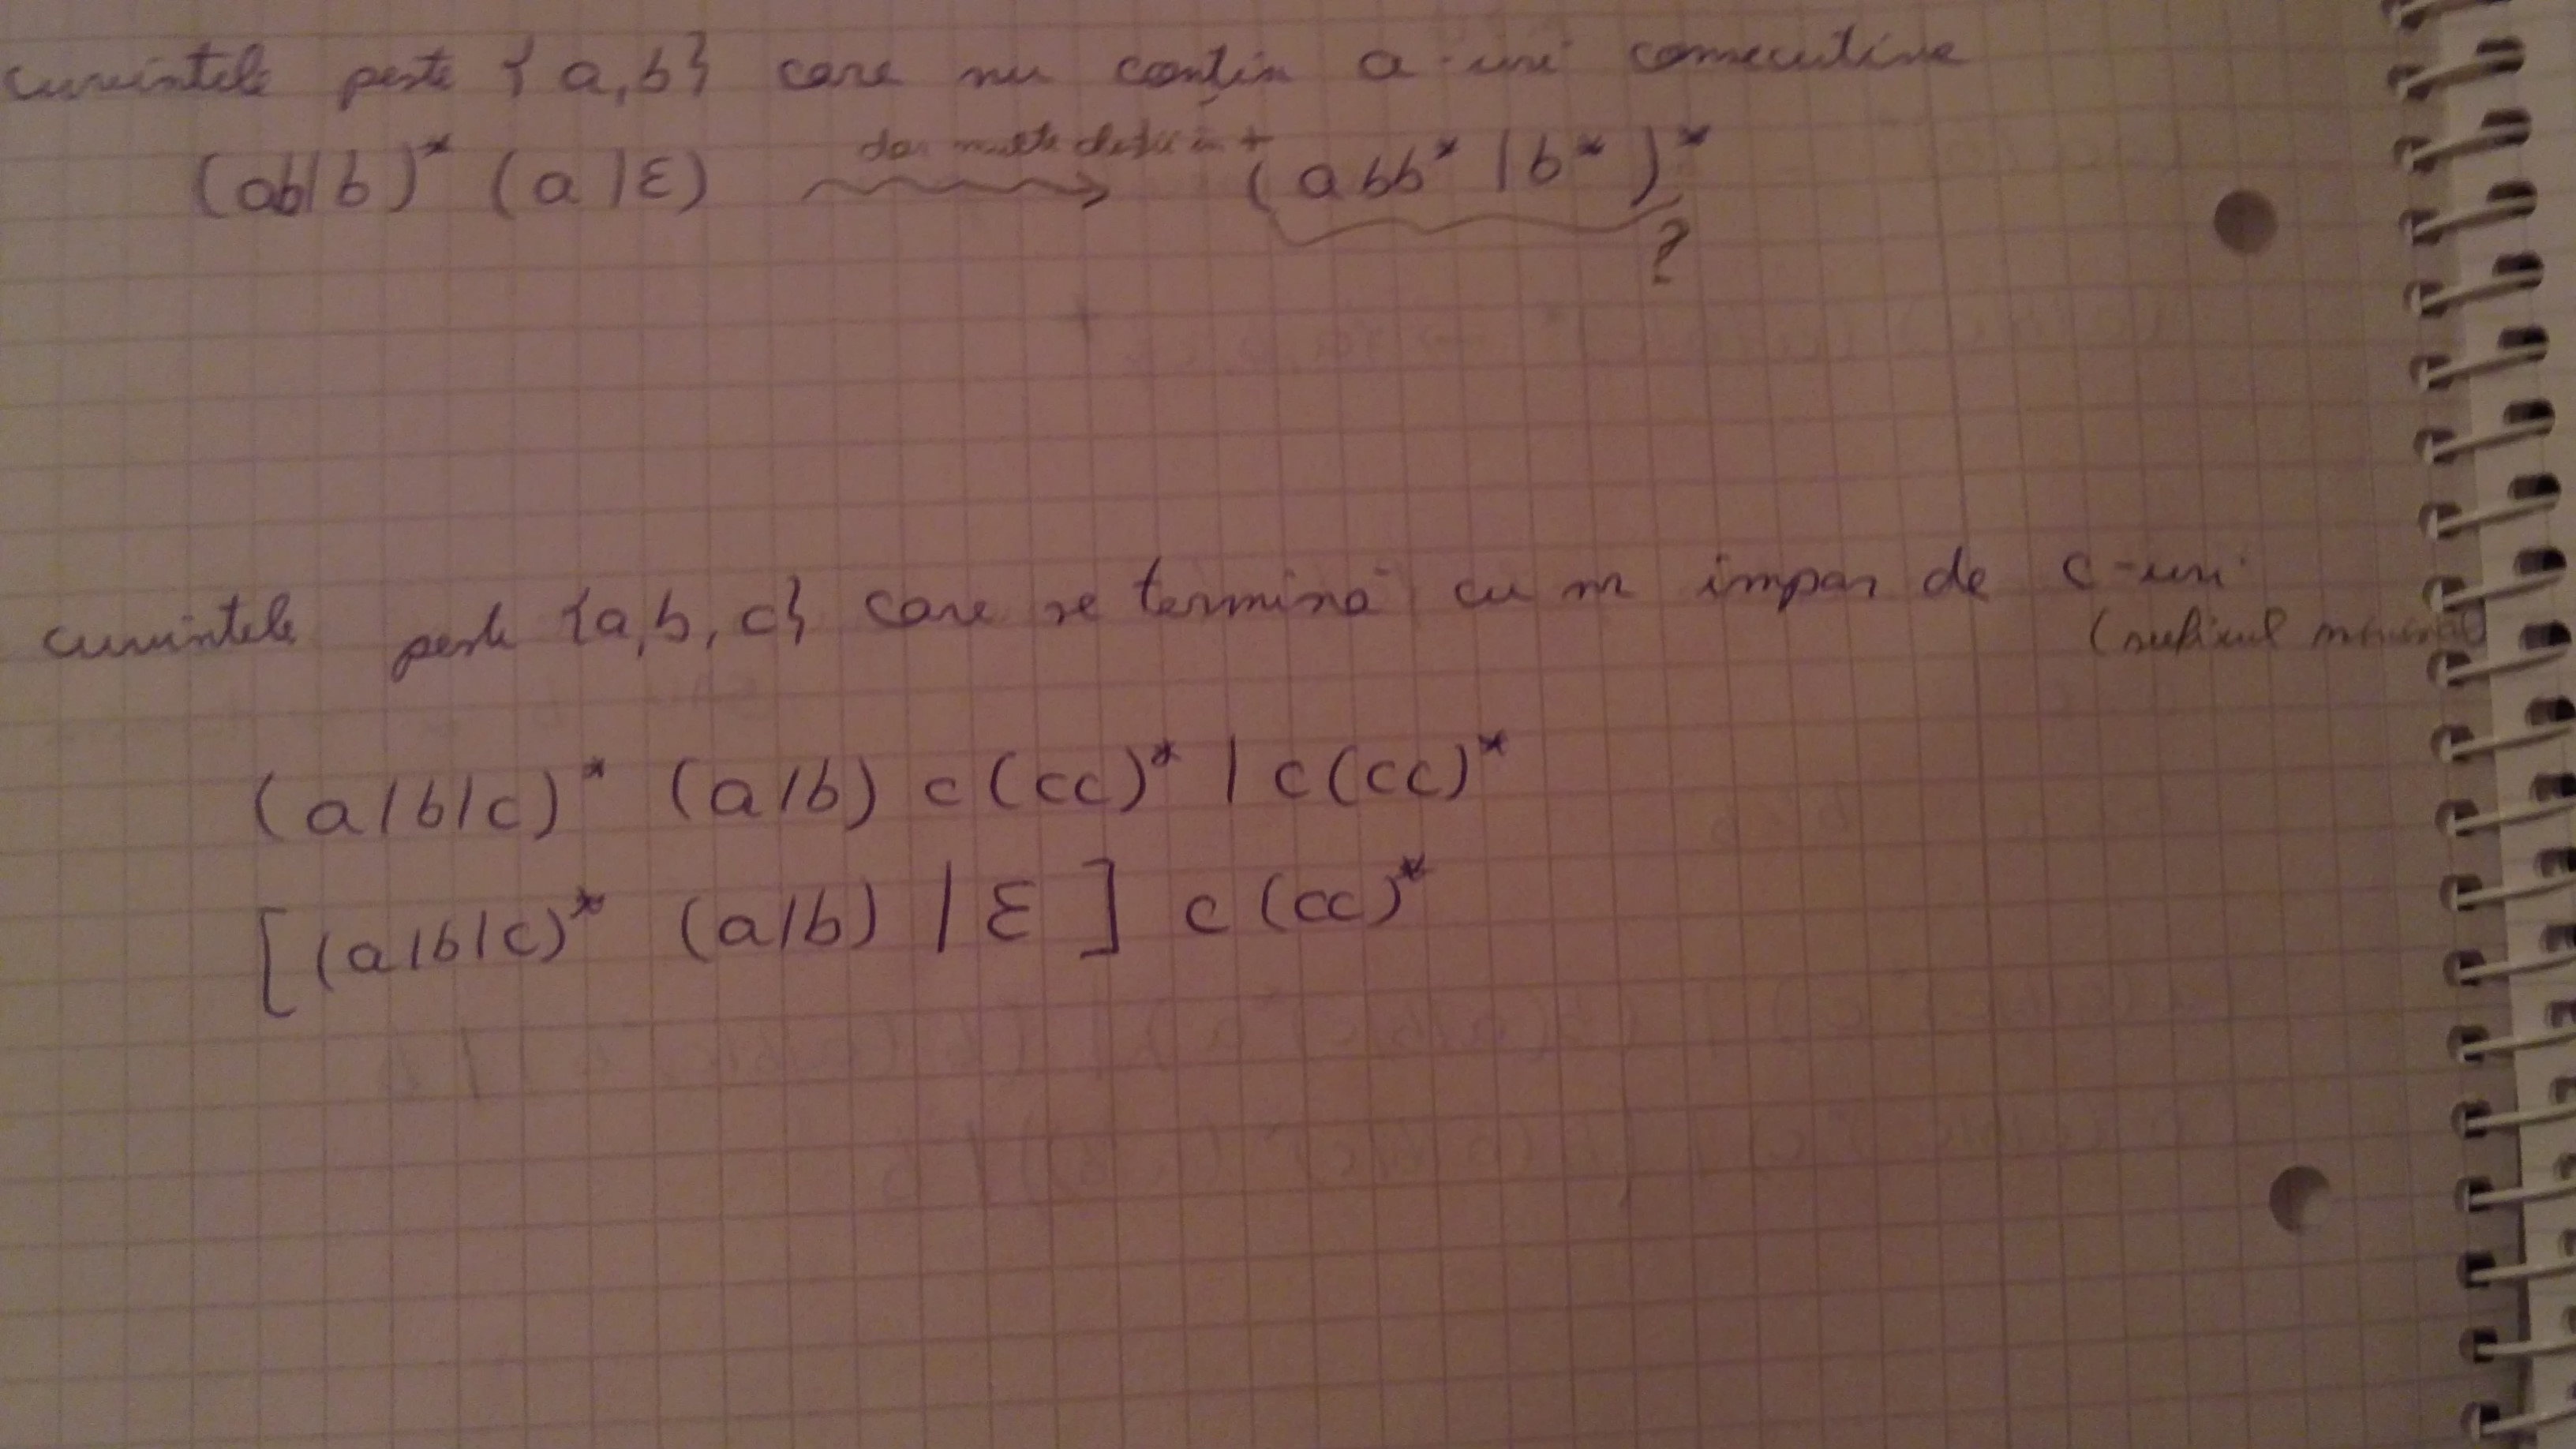 cuvintele peste {a,b} care nu conțin a-uri consecutive
(ab|b)* (a|ε) (abb* | b*)*
?
cuvintele peste {a,b,c} care se termină cu nr impar de c-uri
(sufixul
(a|b|c)* (a|b) c(cc)* | c(cc)*
[(a|b|c)* (a|b) | ε] c(cc)*